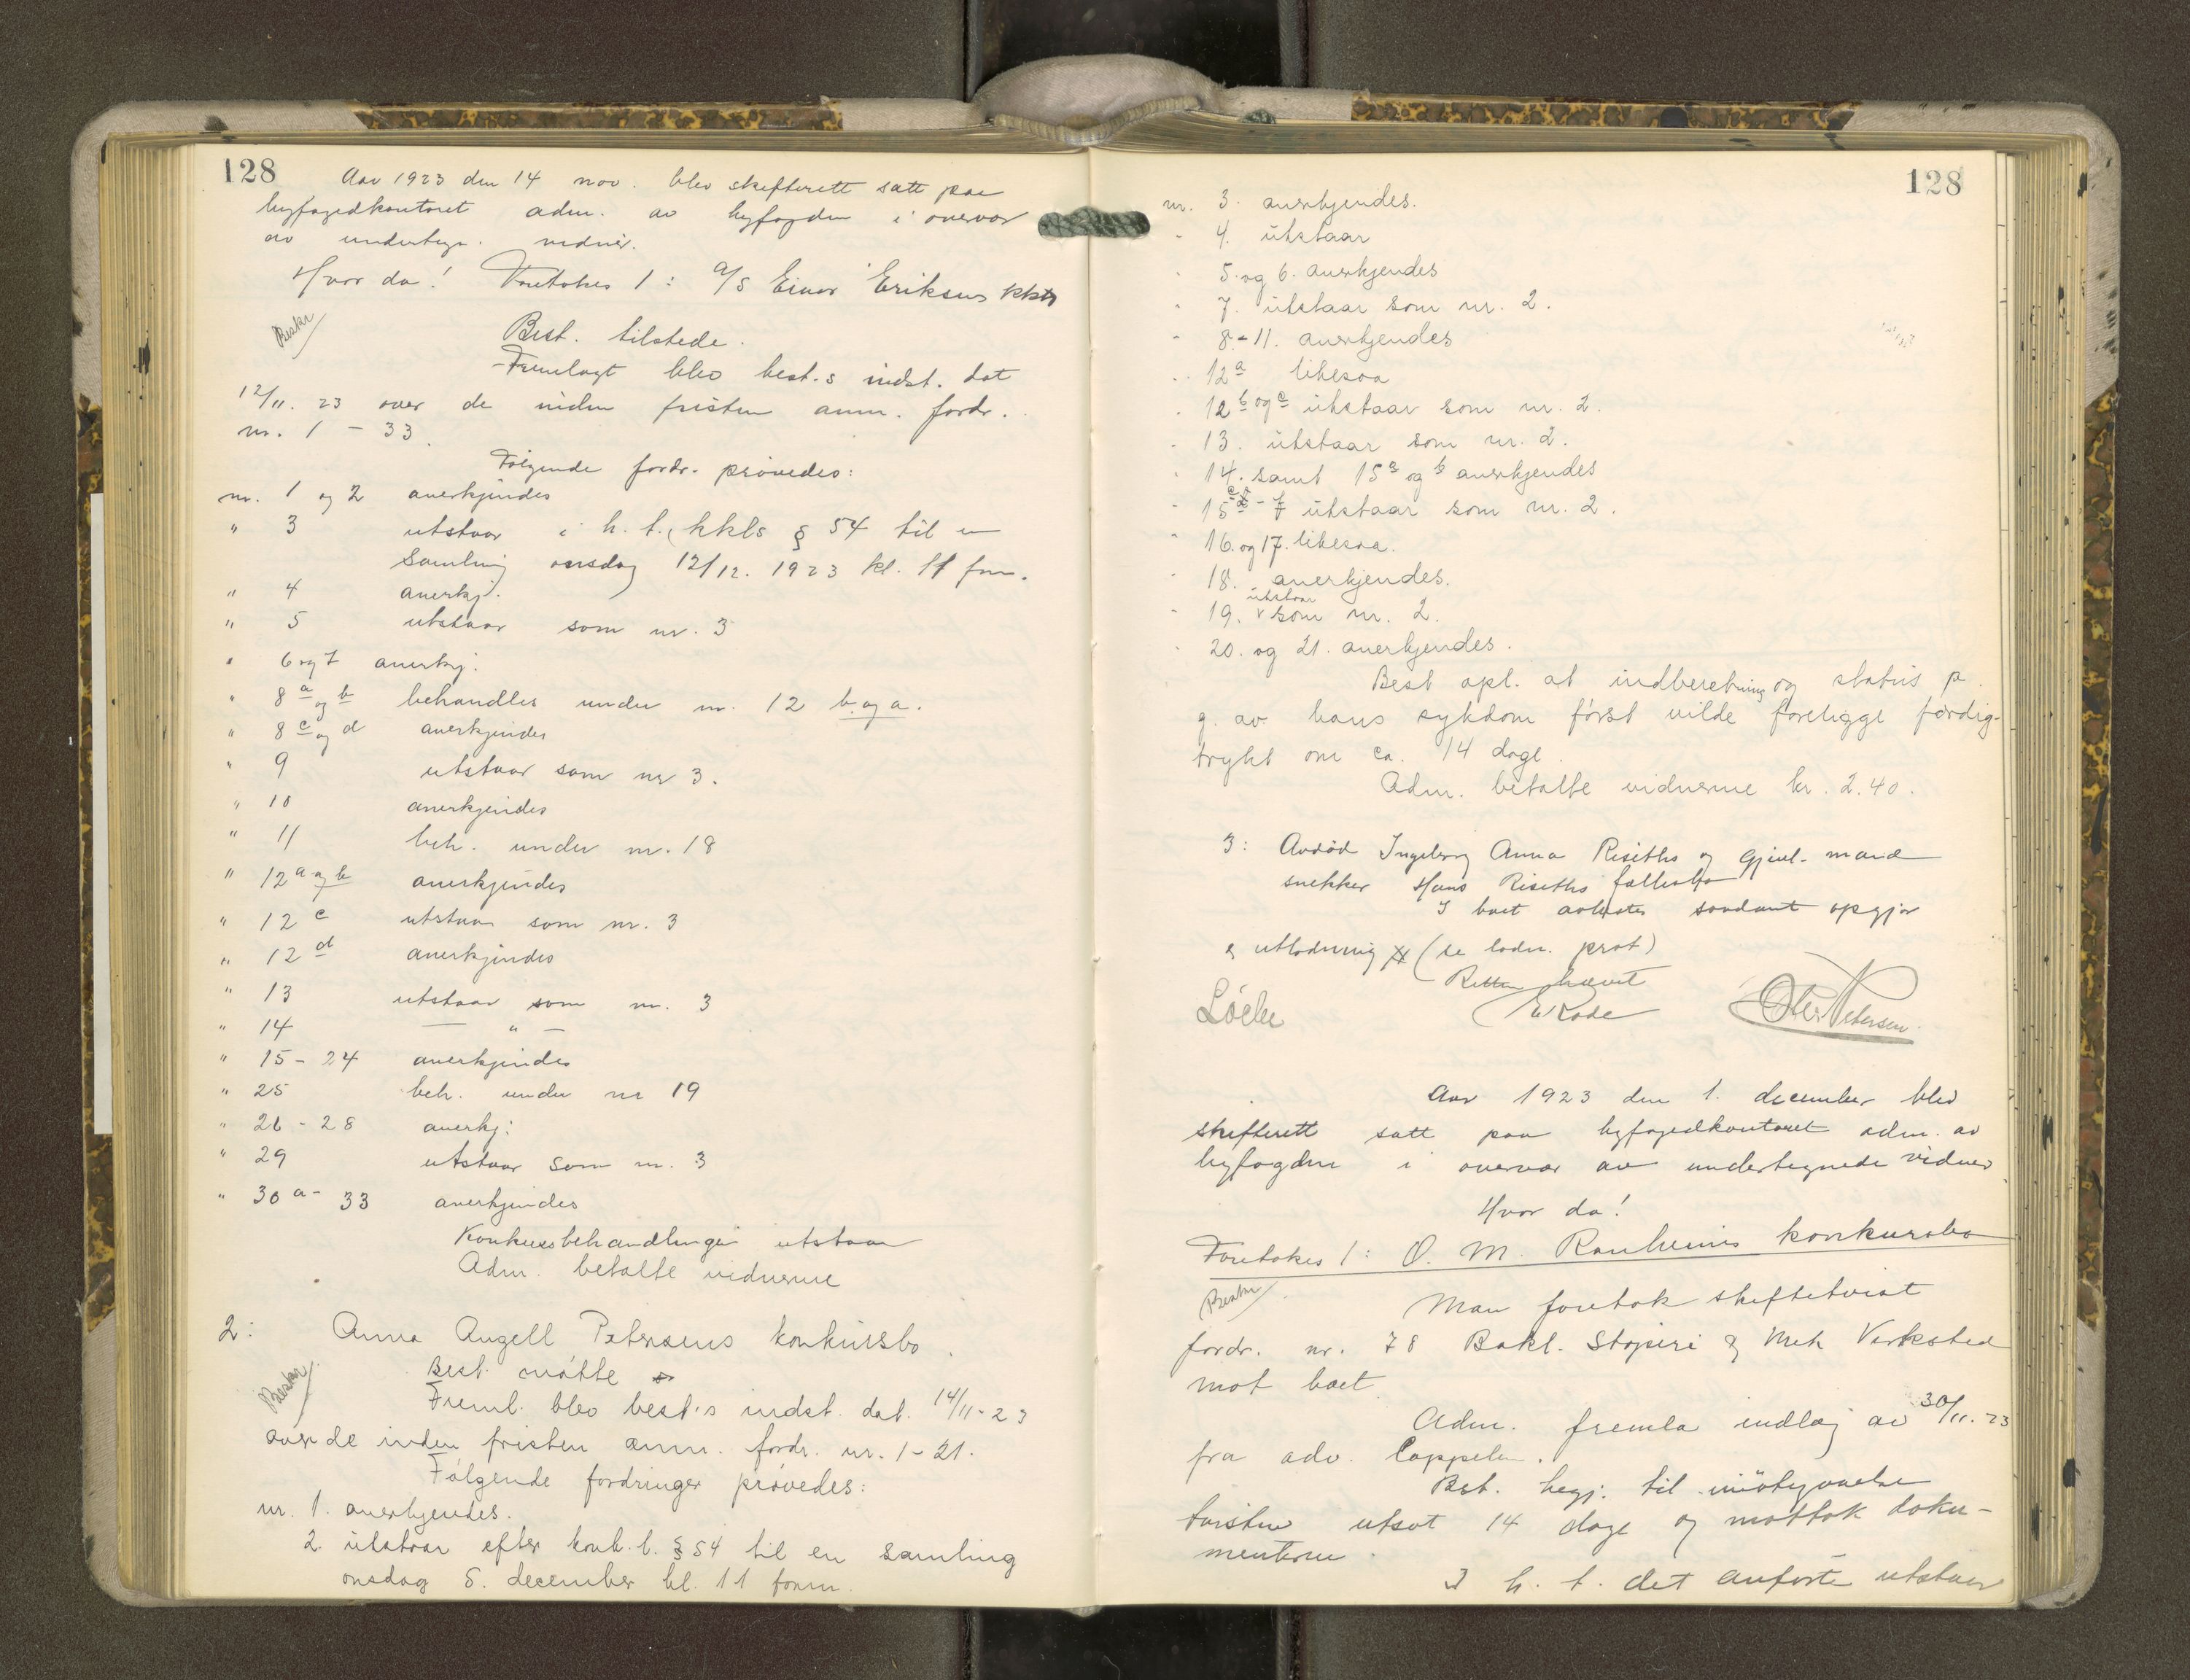 128
Aar 1923 den 14 nov. blev skifterett satt paa
byfogedkontoret adm. av byfogden i overvær
av undertegn. vidner.
Hvor da! Foretokes 1: A/S Einar Eriksens kkbo
Beskr
Best. tilstede.
Fremlagt blev best.s indst. dat
12/11. 23 over de inden fristen anm. fordr.
nr. 1 - 33.
Følgende fordr. prøvedes:
nr. 1 og 2 anerkjendes
" 3 utstaar i h. t. kkls § 54 til en
Samling onsdag 12/12. 1923 kl. 11 fm.
" 4 anerkj.
" 5 utstaar som nr. 3
" 6 og 7 anerkj.
" 8 a og b behandles under nr. 12 b og a.
" 8 c og d anerkjendes
" 9 utstaar som nr 3.
" 10 anerkjendes
" 11 beh. under nr. 18
" 12 a og b anerkjendes
" 12 c utstaar som nr. 3
" 12 d anerkjendes
" 13 utstaar som nr. 3
" 14 — " —
" 15 - 24 anerkjendes
" 25 beh. under nr 19
" 26 - 28 anerkj:
" 29 utstaar som nr. 3
" 30 a - 33 anerkjendes
Konkursbehandlingen utstaar
Adm. betalte vidnerne
2: Anna Angell Petersens konkursbo.
Beskr
Best. møtte
Freml. blev best.s indst. dat. 14/11-23
over de inden fristen anm. fordr. nr. 1-21.
Følgende fordringer prøvedes:
nr. 1. anerkjendes.
2 utstaar efter konk. l. § 54 til en samling
onsdag 5. december kl. 11 form.
128
nr. 3. anerkjendes.
- 4. utstaar
- 5. og 6. anerkjendes
- 7. utstaar som nr. 2.
- 8 - 11. anerkjendes
- 12 a likesaa
- 12 b og c utstaar som nr. 2.
- 13. utstaar som nr. 2.
- 14. samt 15 a og b anerkjendes
- 15 c - f utstaar som nr. 2.
- 16. og 17. likesaa.
- 18. anerkjendes.
- 19. utstaar som nr. 2.
- 20. og 21. anerkjendes.
Best opl. at indberetning og status p.
g. av hans sykdom først vilde foreligge færdig-
trykt om ca. 14 dage.
Adm. betalte vidnerne kr. 2.40.
3: Avdød Ingeborg Anna Riseths og gjenl. mand
snekker Hans Riseths fællesbo
I boet avholdtes saadant opgjør
og utlodning (se lodn. prot)
Retten hævet
Løcke
E Rode
Petersen.
Aar 1923 den 1. december blev
skifterett satt paa byfogedkontoret adm. av
byfogden i overvær av undertegnede vidner
Hvor da!
Foretokes 1: O. M. Ranheims konkursbo
Beskr
Man foretok skiftetvist
fordr. nr. 78 Bakl. Støperi & Mek Verksted
mot boet.
Adm. fremla indlæg av 30/11. 23
fra adv. Cappelen.
Best. begj. til imøtegaaelse
tvisten utsat 14 dage og mottok doku-
menterne.
I h. t. det anførte utstaar